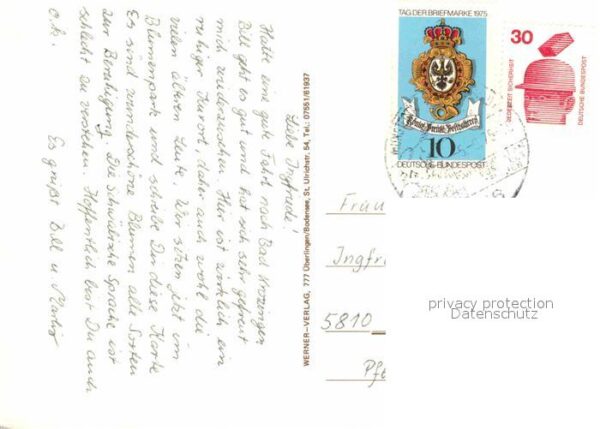 Liebe Ingfriede!
Hatte eine gute Fahrt nach Bad Krozingen
Bill geht es gut und hat sich sehr gefreut
mich wiederzusehen. Hier ist wirklich ein
ruhiger Kurort, daher auch wohl die
vielen älteren Leute. Wir sitzen jetzt im
Blumenpark und schreibe Dir diese Karte
Es sind wunderschöne Blumen alle Sorten
zur Besichtigung. Die schwäbische Sprache ist
schlecht zu verstehen. Hoffentlich bist Du auch
o.k.
Es grüßt Bill u.
WERNER-VERLAG, 777 Überlingen/Bodensee, St. Ulrichstr. 54, Tel.: 07551/61937
TAG DER BRIEFMARKE 1975
10
DEUTSCHE BUNDESPOST
30
JEDERZEIT SICHERHEIT
DEUTSCHE BUNDESPOST
Frau
Ingfr
5810
privacy protection
Datenschutz